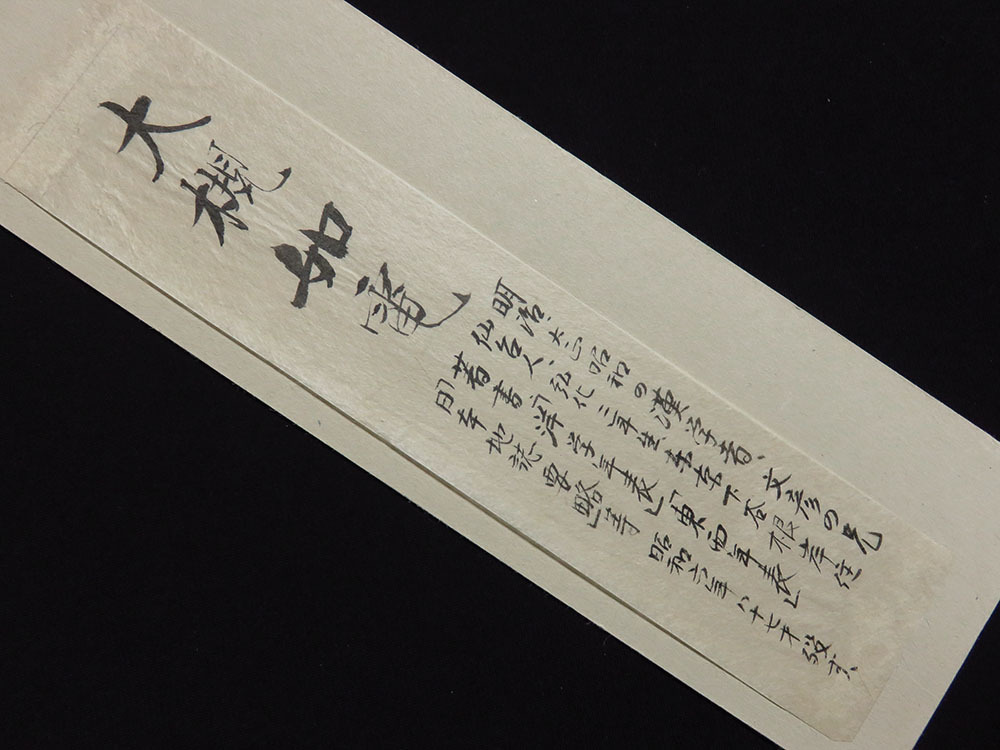 大槻如電
明治、大正、昭和の漢学者、文彦の兄
仙台人、弘化二年生東京下谷根岸住
著書「洋学年表」「東西年表」
「日本地誌要略」等 昭和六年八十七才歿す、